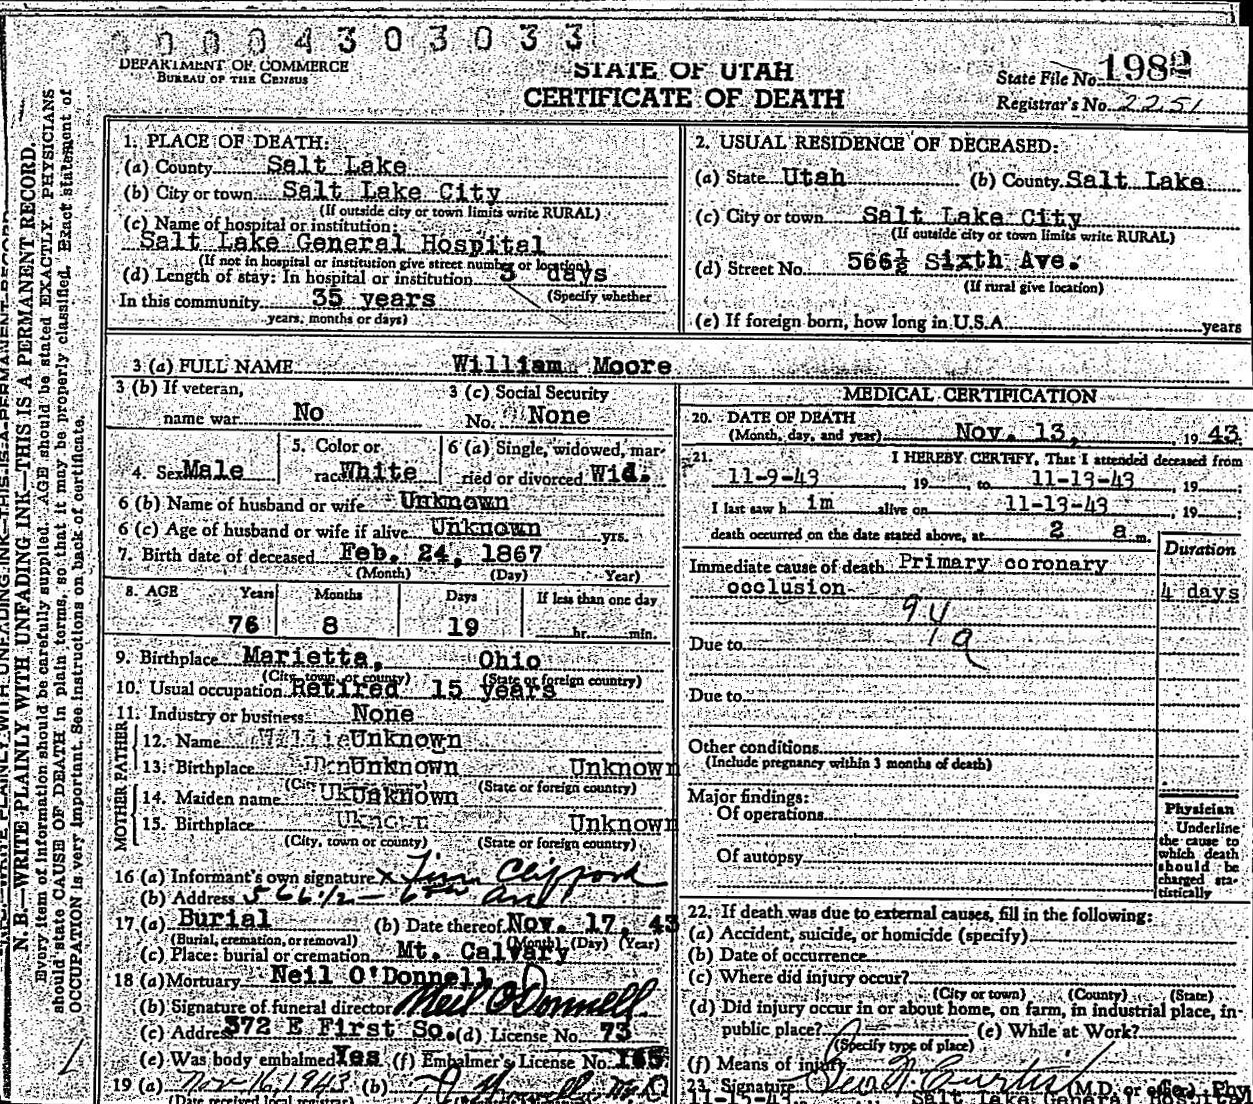 0004303033
DEPARTMENT OF COMMERCE
BUREAU OF THE CENSUS
STATE OF UTAH
CERTIFICATE OF DEATH
State File No. 198
Registrar's No. 2251
N. B.—WRITE PLAINLY WITH UNFADING INK—THIS IS A PERMANENT RECORD.
Every item of information should be carefully supplied. AGE should be stated EXACTLY. PHYSICIANS
should state CAUSE OF DEATH in plain terms, so that it may be properly classified. Exact statement of
OCCUPATION is very important. See instructions on back of certificate.
1. PLACE OF DEATH:
(a) County Salt Lake
(b) City or town Salt Lake City
(If outside city or town limits write RURAL)
(c) Name of hospital or institution:
Salt Lake General Hospital
(If not in hospital or institution give street number or location)
(d) Length of stay: In hospital or institution 3 days
(Specify whether
In this community 35 years
years, months or days)
2. USUAL RESIDENCE OF DECEASED:
(a) State Utah (b) County Salt Lake
(c) City or town Salt Lake City
(If outside city or town limits write RURAL)
(d) Street No. 566½ Sixth Ave.
(If rural give location)
(e) If foreign born, how long in U.S.A. years
3 (a) FULL NAME William Moore
3 (b) If veteran, 3 (c) Social Security
name war No No. None
4. Sex Male 5. Color or race White 6 (a) Single, widowed, married or divorced Wid.
6 (b) Name of husband or wife Unknown
6 (c) Age of husband or wife if alive Unknown yrs.
7. Birth date of deceased Feb. 24, 1867
(Month) (Day) Year)
8. AGE Years Months Days If less than one day
76 8 19 hr. min.
9. Birthplace Marietta, Ohio
(City, town, or county) (State or foreign country)
10. Usual occupation Retired 15 years
11. Industry or business None
FATHER
12. Name Unknown
13. Birthplace Unknown Unknown
(State or foreign country)
MOTHER
14. Maiden name Unknown
15. Birthplace Unknown
(City, town or county) (State or foreign country)
16 (a) Informant's own signature x Tim Clifford
(b) Address 566 1/2 - 6th Ave
17 (a) Burial (b) Date thereof Nov. 17, 43
(Burial, cremation, or removal) (Month) (Day) (Year)
(c) Place: burial or cremation Mt. Calvary
18 (a) Mortuary Neil O'Donnell
(b) Signature of funeral director Neil O'Donnell
(c) Address 372 E First So. (d) License No. 73
(e) Was body embalmed Yes (f) Embalmer's License No. 165
19 (a) Nov 16, 1943 (b)
(Date received local registrar)
MEDICAL CERTIFICATION
20. DATE OF DEATH
(Month, day, and year) Nov. 13, 1943.
21. I HEREBY CERTIFY, That I attended deceased from
11-9-43, 19 to 11-13-43, 19 ;
I last saw h im alive on 11-13-43, 19 ;
death occurred on the date stated above, at 2 a m.
Duration
Immediate cause of death Primary coronary
occlusion 4 days
94
1a
Due to
Due to
Other conditions
(Include pregnancy within 3 months of death)
Major findings:
Of operations
Of autopsy
Physician
Underline
the cause to
which death
should be
charged sta-
tistically
22. If death was due to external causes, fill in the following:
(a) Accident, suicide, or homicide (specify)
(b) Date of occurrence
(c) Where did injury occur?
(City or town) (County) (State)
(d) Did injury occur in or about home, on farm, in industrial place, in-
public place? (e) While at Work?
(Specify type of place)
(f) Means of injury
23. Signature Curtis (M.D. or Phy
11-15-43 Salt Lake General Hospital